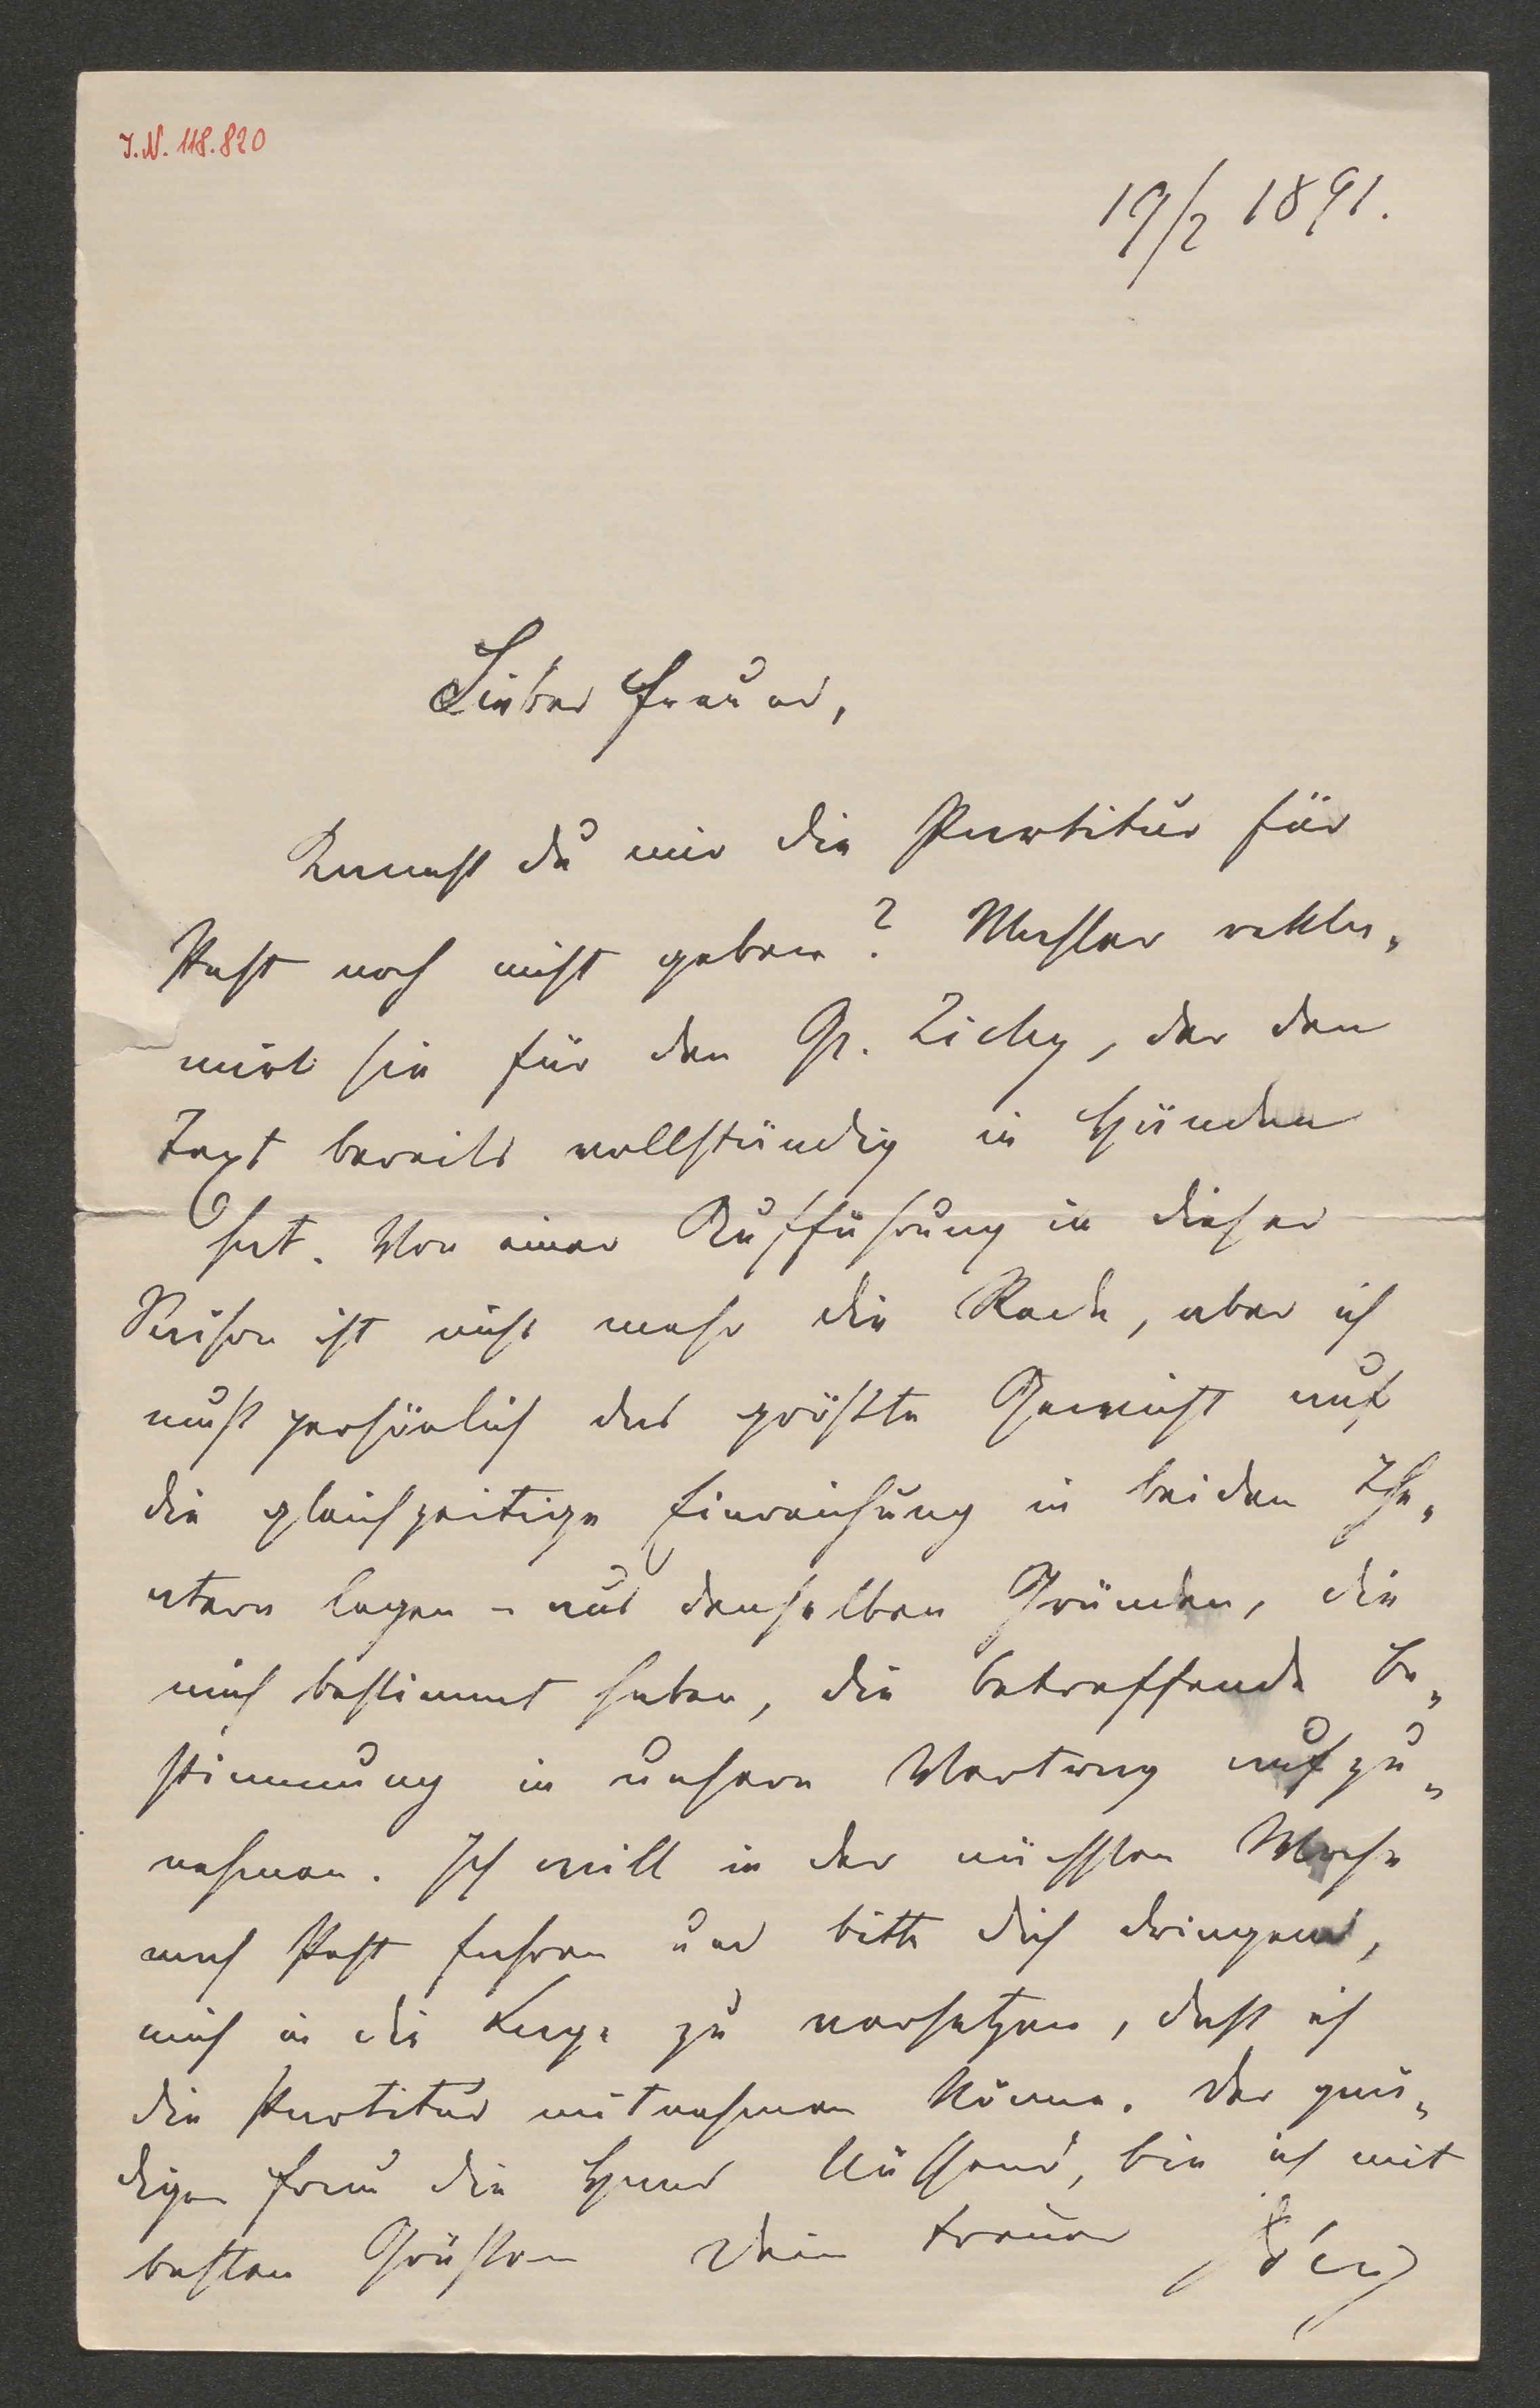 I.N. 118.820
19/2 1891.
Lieber Freund,
Kannst du mir die Partitur für
Pest noch nicht geben? Mahler rekla„
mirt sie für den Gr. Zichy, der den
Text bereits vollständig in Händen
hat. Von einer Aufführung in dieser
Saison ist nicht mehr die Rede, aber ich
muß persönlich das größte Gewicht auf
die gleichzeitige Einreichung in beiden The„
atern legen – aus denselben Gründen, die
mich bestimmt haben, die betreffende Be„
stimmung in unsern Vertrag aufzu„
nehmen. Ich will in der nächsten Woche
nach Pest fahren und bitte dich dringend,
mich in die Lage zu versetzen, daß ich
die Partitur mitnehmen könne. Der gnä„
digen Frau die Hand küssend, bin ich mit
besten Grüßen Dein treuer Dóczy